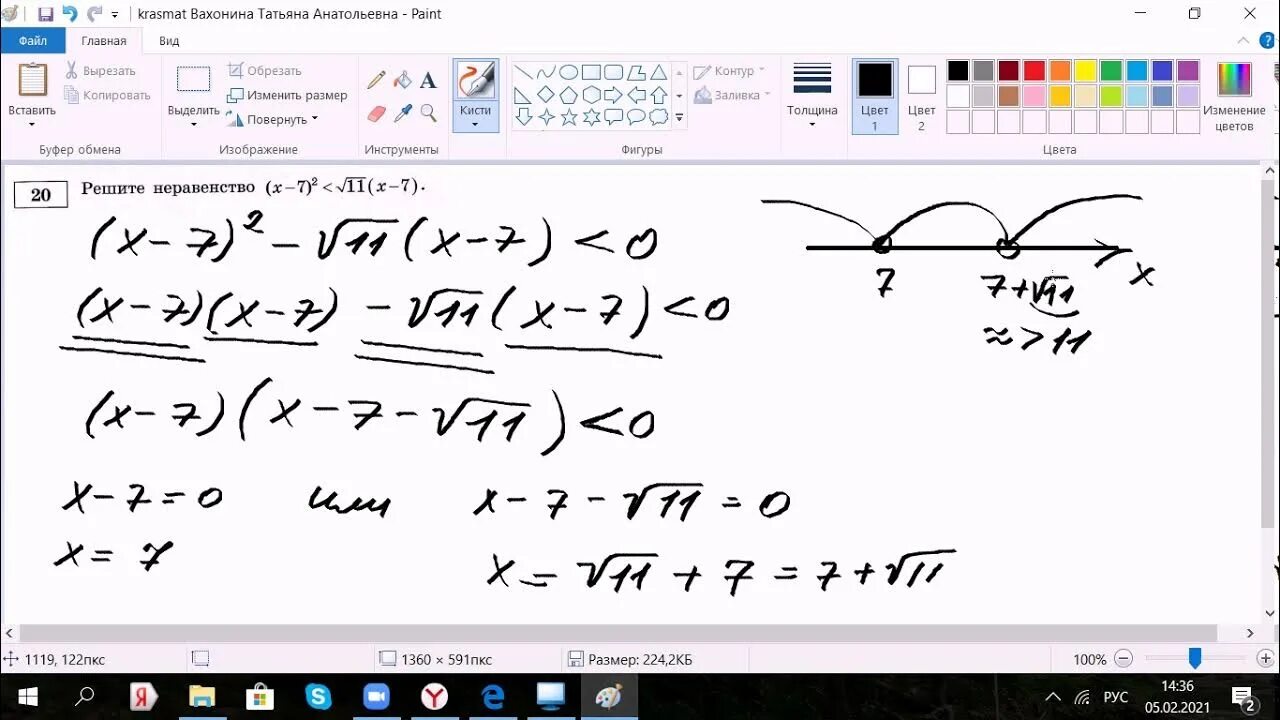 krasmat Вахонина Татьяна Анатольевна - Paint
Файл Главная Вид
Вставить Вырезать Копировать
Буфер обмена
Выделить Обрезать Изменить размер Повернуть
Изображение
A
Инструменты
Кисти
Контур Заливка
Фигуры
Толщина
Цвет 1 Цвет 2
Изменение цветов
Цвета
20 Решите неравенство (x−7)² < √11(x−7).
(x − 7)² − √11 (x − 7) < 0
(x − 7)(x − 7) − √11 (x − 7) < 0
(x − 7)(x − 7 − √11) < 0
x − 7 = 0 или x − 7 − √11 = 0
x = 7 x = √11 + 7 = 7 + √11
7 7+√11 x
≈ > 11
1119, 122пкс 1360 × 591пкс Размер: 224,2КБ 100%
РУС 14:36
05.02.2021 2